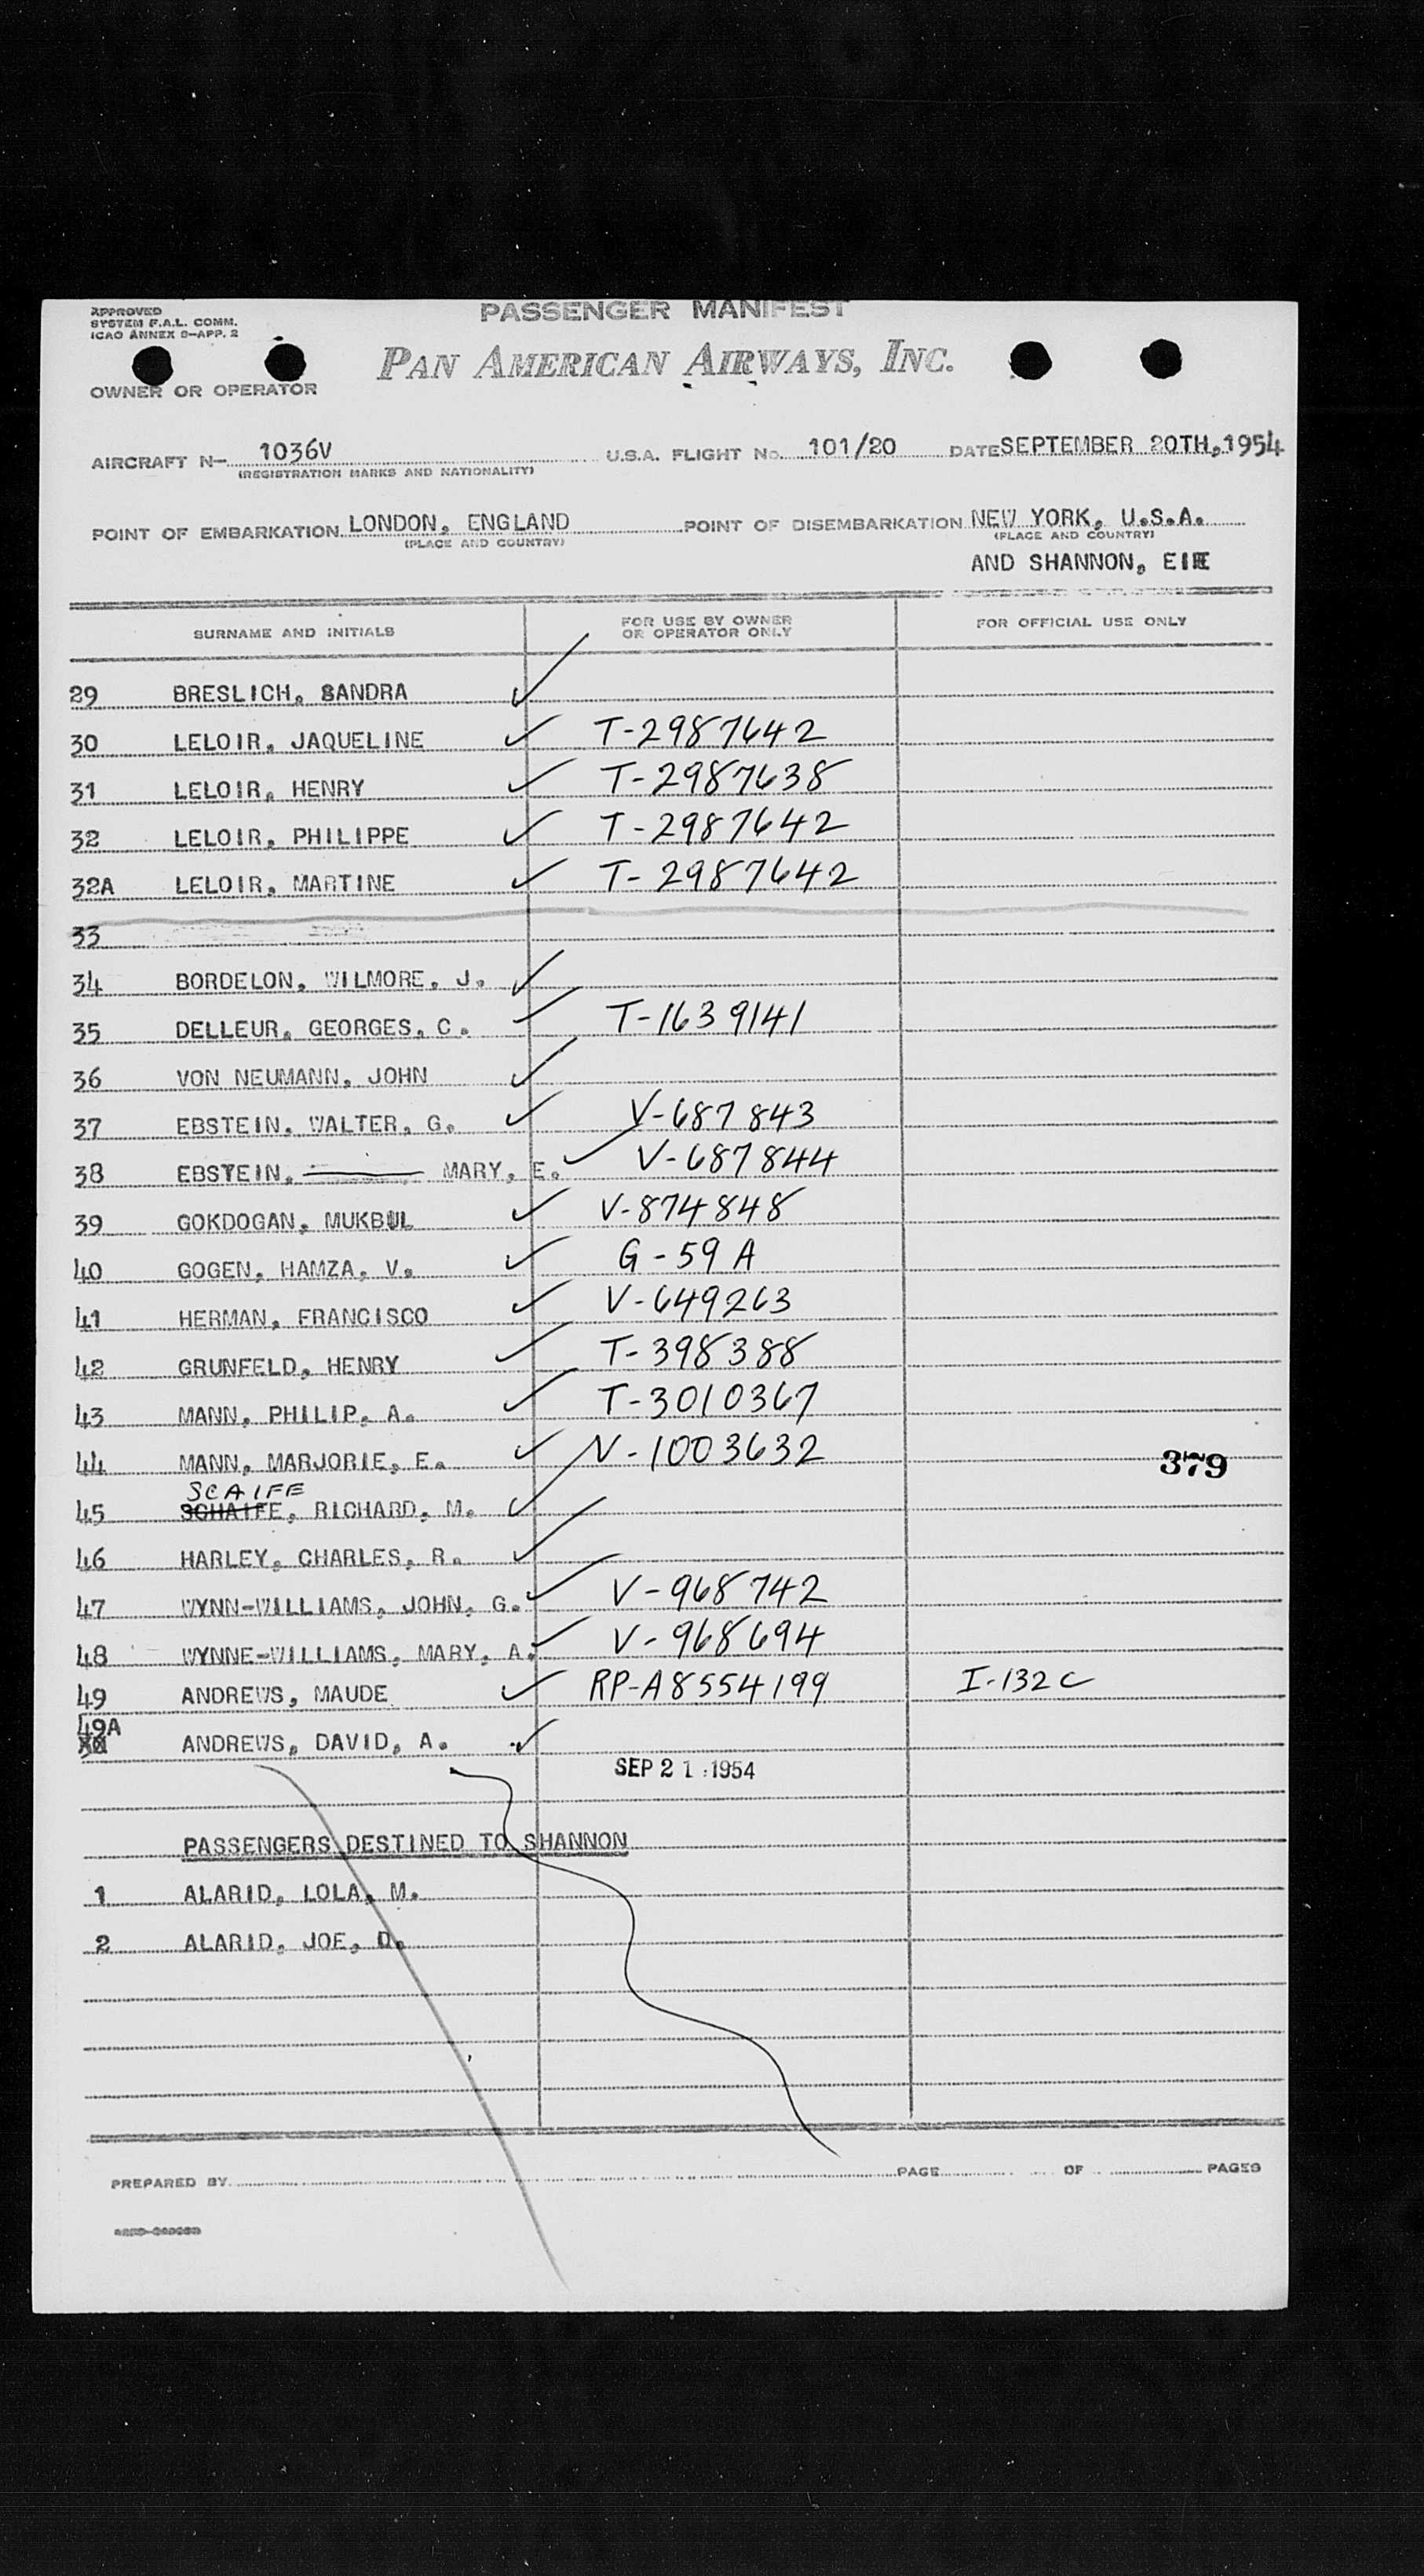 APPROVED
SYSTEM F.A.L. COMM.
ICAO ANNEX 9-APP. 2
PASSENGER MANIFEST
PAN AMERICAN AIRWAYS, INC.
OWNER OR OPERATOR
AIRCRAFT N- 1036V U.S.A. FLIGHT No. 101/20 DATE SEPTEMBER 20TH, 1954
(REGISTRATION MARKS AND NATIONALITY)
POINT OF EMBARKATION LONDON, ENGLAND POINT OF DISEMBARKATION NEW YORK, U.S.A.
(PLACE AND COUNTRY) (PLACE AND COUNTRY)
AND SHANNON, EIRE
SURNAME AND INITIALS FOR USE BY OWNER OR OPERATOR ONLY FOR OFFICIAL USE ONLY
29 BRESLICH, SANDRA
30 LELOIR, JAQUELINE T-2987642
31 LELOIR, HENRY T-2987638
32 LELOIR, PHILIPPE T-2987642
32A LELOIR, MARTINE T-2987642
33
34 BORDELON, WILMORE, J.
35 DELLEUR, GEORGES, C. T-1639141
36 VON NEUMANN, JOHN
37 EBSTEIN, WALTER, G. V-687843
38 EBSTEIN, MARY, E. V-687844
39 GOKDOGAN, MUKBUL V-874848
40 GOGEN, HAMZA, V. G-59A
41 HERMAN, FRANCISCO V-649263
42 GRUNFELD, HENRY T-398388
43 MANN, PHILIP, A. T-3010367
44 MANN, MARJORIE, E. N-1003632
379
SCAIFE
45 SCHAIFE, RICHARD, M.
46 HARLEY, CHARLES, R.
47 WYNN-WILLIAMS, JOHN, G. V-968742
48 WYNNE-WILLIAMS, MARY, A. V-968694
49 ANDREWS, MAUDE RP-A8554199 I-132C
49A ANDREWS, DAVID, A.
SEP 21 1954
PASSENGERS DESTINED TO SHANNON
1 ALARID, LOLA, M.
2 ALARID, JOE, D.
PREPARED BY PAGE OF PAGES